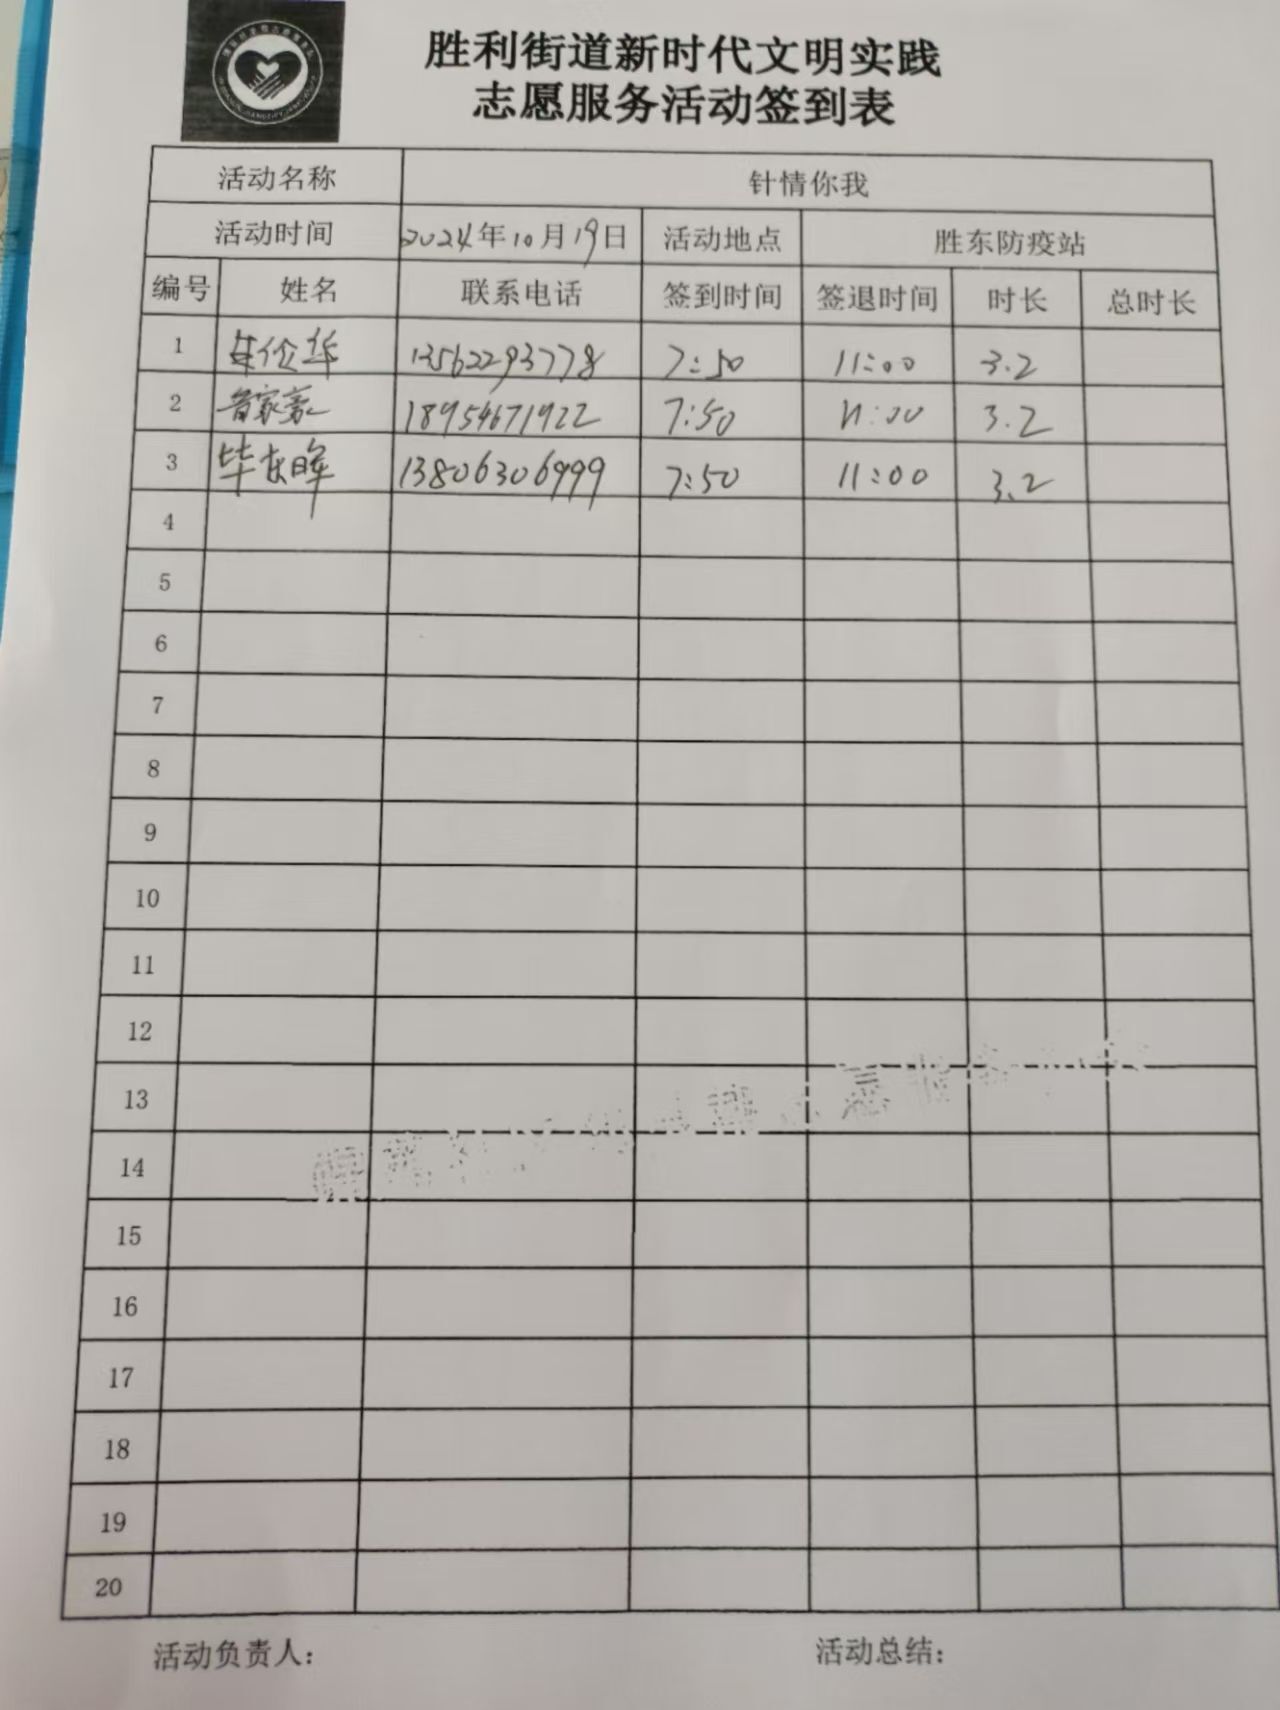 胜利街道新时代文明实践
志愿服务活动签到表
活动名称 针情你我
活动时间 2024年10月19日 活动地点 胜东防疫站
编号 姓名 联系电话 签到时间 签退时间 时长 总时长
1 华 13562293778 7:50 11:00 3.2
2 家豪 18954671922 7:50 11:00 3.2
3 毕东晖 13806306999 7:50 11:00 3.2
4
5
6
7
8
9
10
11
12
13
14
15
16
17
18
19
20
活动负责人: 活动总结: